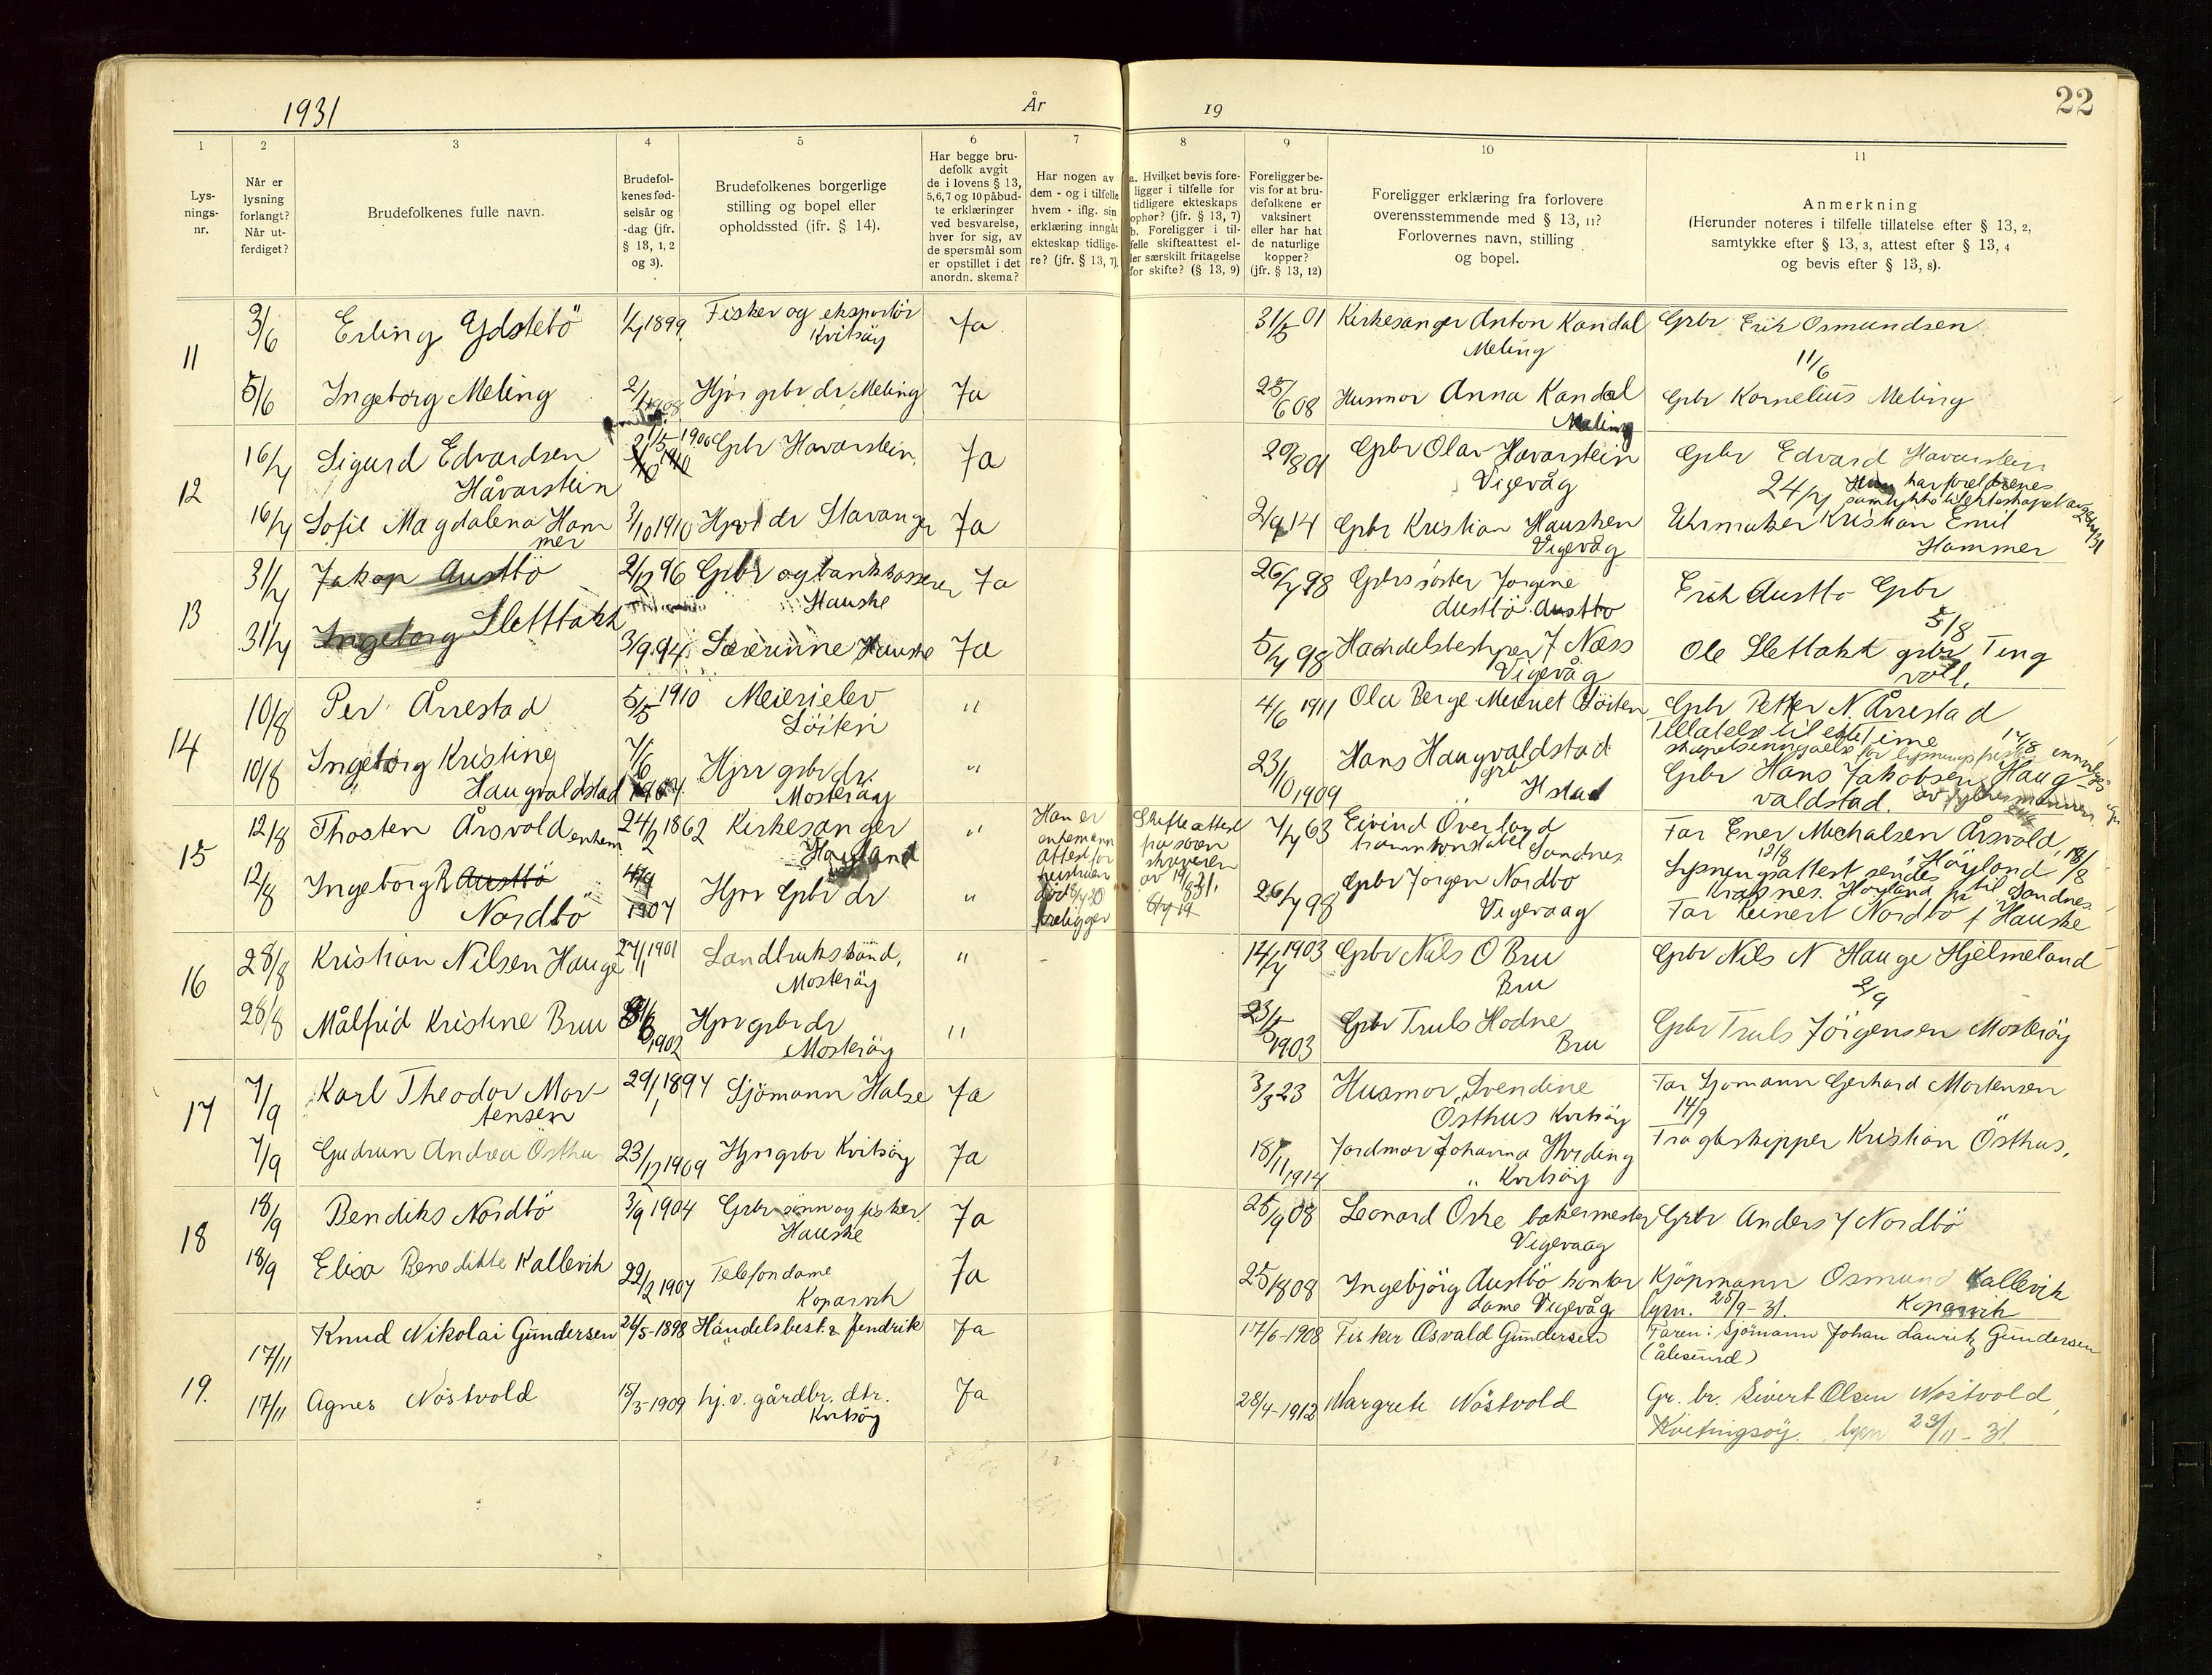 1931
År
19
22
1
2
3
4
5
6
7
8
9
10
11
Lys-
nings-
nr.
Når er
lysning
forlangt?
Når ut-
ferdiget?
Brudefolkenes fulle navn.
Brudefol-
kenes fød-
selsår og
-dag (jfr.
§ 13, 1, 2
og 3).
Brudefolkenes borgerlige
stilling og bopel eller
opholdssted (jfr. § 14).
Har begge bru-
defolk avgit
de i lovens § 13,
5,6,7 og 10 påbud-
te erklæringer
ved besvarelse,
hver for sig, av
de spørsmål som
er opstillet i det
anordn. skema?
Har nogen av
dem - og i tilfelle
hvem - iflg. sin
erklæring inngåt
ekteskap tidlige-
re? (jfr. § 13, 7).
a. Hvilket bevis fore-
ligger i tilfelle for
tidligere ekteskaps
ophør? (jfr. § 13, 7)
b. Foreligger i til-
felle skifteattest el-
ler særskilt fritagelse
for skifte? (§ 13, 9)
Foreligger be-
vis for at bru-
defolkene er
vaksinert
eller har hat
de naturlige
kopper?
(jfr. § 13, 12)
Foreligger erklæring fra forlovere
overensstemmende med § 13, 11?
Forlovernes navn, stilling
og bopel.
Anmerkning
(Herunder noteres i tilfelle tillatelse efter § 13, 2,
samtykke efter § 13, 3, attest efter § 13, 4
og bevis efter § 13, 8).
11
3/6 Erling Ydstebö 1/7 1899 Fisker og eksportör Ja 31/5 01 Kirkesanger Anton Kandal Grbr Erik Osmundsen
Kvitsöy Meling 11/6
5/6 Ingeborg Meling 2/1 1908 Hjvr grbr dr Meling Ja 25/6 08 Husmor Anna Kandal Grbr Kornelius Meling
Meling
12
16/7 Sigurd Edvardsen 21/5 1906 Gpbr Havarstein Ja 20/8 01 Gpbr Olav Havarstein Gpbr Edvard Havarstein
Håvarstein Vigevåg 24/7 har foreldrenes
samtykke til ekteskapet
16/7 Sofie Magdalena Ham 3/10 1910 Hjvr dr Stavanger Ja 2/9 14 Gpbr Kristian Hausken Urmaker Kristian Emil
mer Vigevåg Hammer
13
31/7 Jakop Austbö 2/12 96 Gpbr og bankkasserer Ja 26/7 98 Gpbrs söster Jorgine Erik Austbö Gpbr
Hauske Austbö Austbo 5/8
31/7 Ingeborg Slettakk 3/9 94 Hauske Ja 5/7 98 Handelsbestyrer J Næss Ole Slettakk grbr Ting
Vigevåg voll.
14
10/8 Per Årrestad 5/5 1910 Meierielev " 4/6 1911 Ola Berge Meieriet Löiten Gpbr Petter N. Årrestad
Löiten Time 14/8
10/8 Ingeborg Kristine 7/6 Hjvr grbr dr. " 23/10 1909 Hans Haugvaldstad Gpbr Hans Jakobsen Haug-
Haugvaldstad Mosteröy grbr H stad valdstad.
15
12/8 Thosten Årsvold enkem. 24/2 1862 Kirkesanger " Han er Skifteattest 7/7 63 Eivind Överland Far Ener Michalsen Årsvold,
Höyland enkemann fra soren Sandnes Höyland
Attest for skriveren 12/8 Lysningsattest sendes
12/8 Ingeborg R Austbö 1907 Hjvr Gpbr dr " 26/7 98 Gpbr Jorgen Nordbö til Sandnes
Nordbö foreligger Vigevaag Far Reinert Nordbö f Hauske
16
28/8 Kristian Nilsen Hauge 27/11 1901 Landbrukskand. " - 14/7 1903 Gpbr Nils O Bru Gpbr Nils N Hauge Hjelmeland
Mosteröy Bru 2/9
28/8 Målfrid Kristine Bru 1902 Hjvr grbr dr " 23/5 1903 Gpbr Truls Hodne Gpbr Truls Jörgensen Mosteröy
Mosteröy Bru
17
7/9 Karl Theodor Mor- 29/1 1894 Sjömann Halse Ja 3/3 23 Husmor Svendine Far Sjömann Gerhard Mortensen
tensen Östhus Kvitsöy 14/9
7/9 Gudrun Andrea Östhus 23/12 1909 Hjvr grbr Kvitsöy Ja 18/11 1914 Jordmor Johanna Fragtskipper Kristian Östhus.
" Kvitsöy
18
18/9 Bendiks Nordbö 3/9 1904 Grbr sönn og fisker Ja 25/9 08 Leonard Orke bakermester Grbr Anders J Nordbö
Hauske Vigevaag
18/9 Elisa Benedikte Kallevik 22/2 1907 Telefondame Ja 25/8 08 Ingebjörg Austbö kontor Kjöpmann Osmund Kallevik
Koparvik dame Vigevåg lysn. 25/9-31. Kopervik
19.
17/11 Knud Nikolai Gundersen 26/5-1898 Handelsbest. Jendrik Ja 17/6-1908 Fisker Osvald Gundersen Faren: Sjömann Johan Lauritz Gundersen
(Ålesund)
17/11 Agnes Nöstvold 15/3-1909 hj.v. gårdbr. dtr. Ja 28/4-1912 Margrete Nöstvold Gr. br. Sivert Olsen Nöstvold,
Kvitsöy Kvitingsöy. lysn 23/11-31.